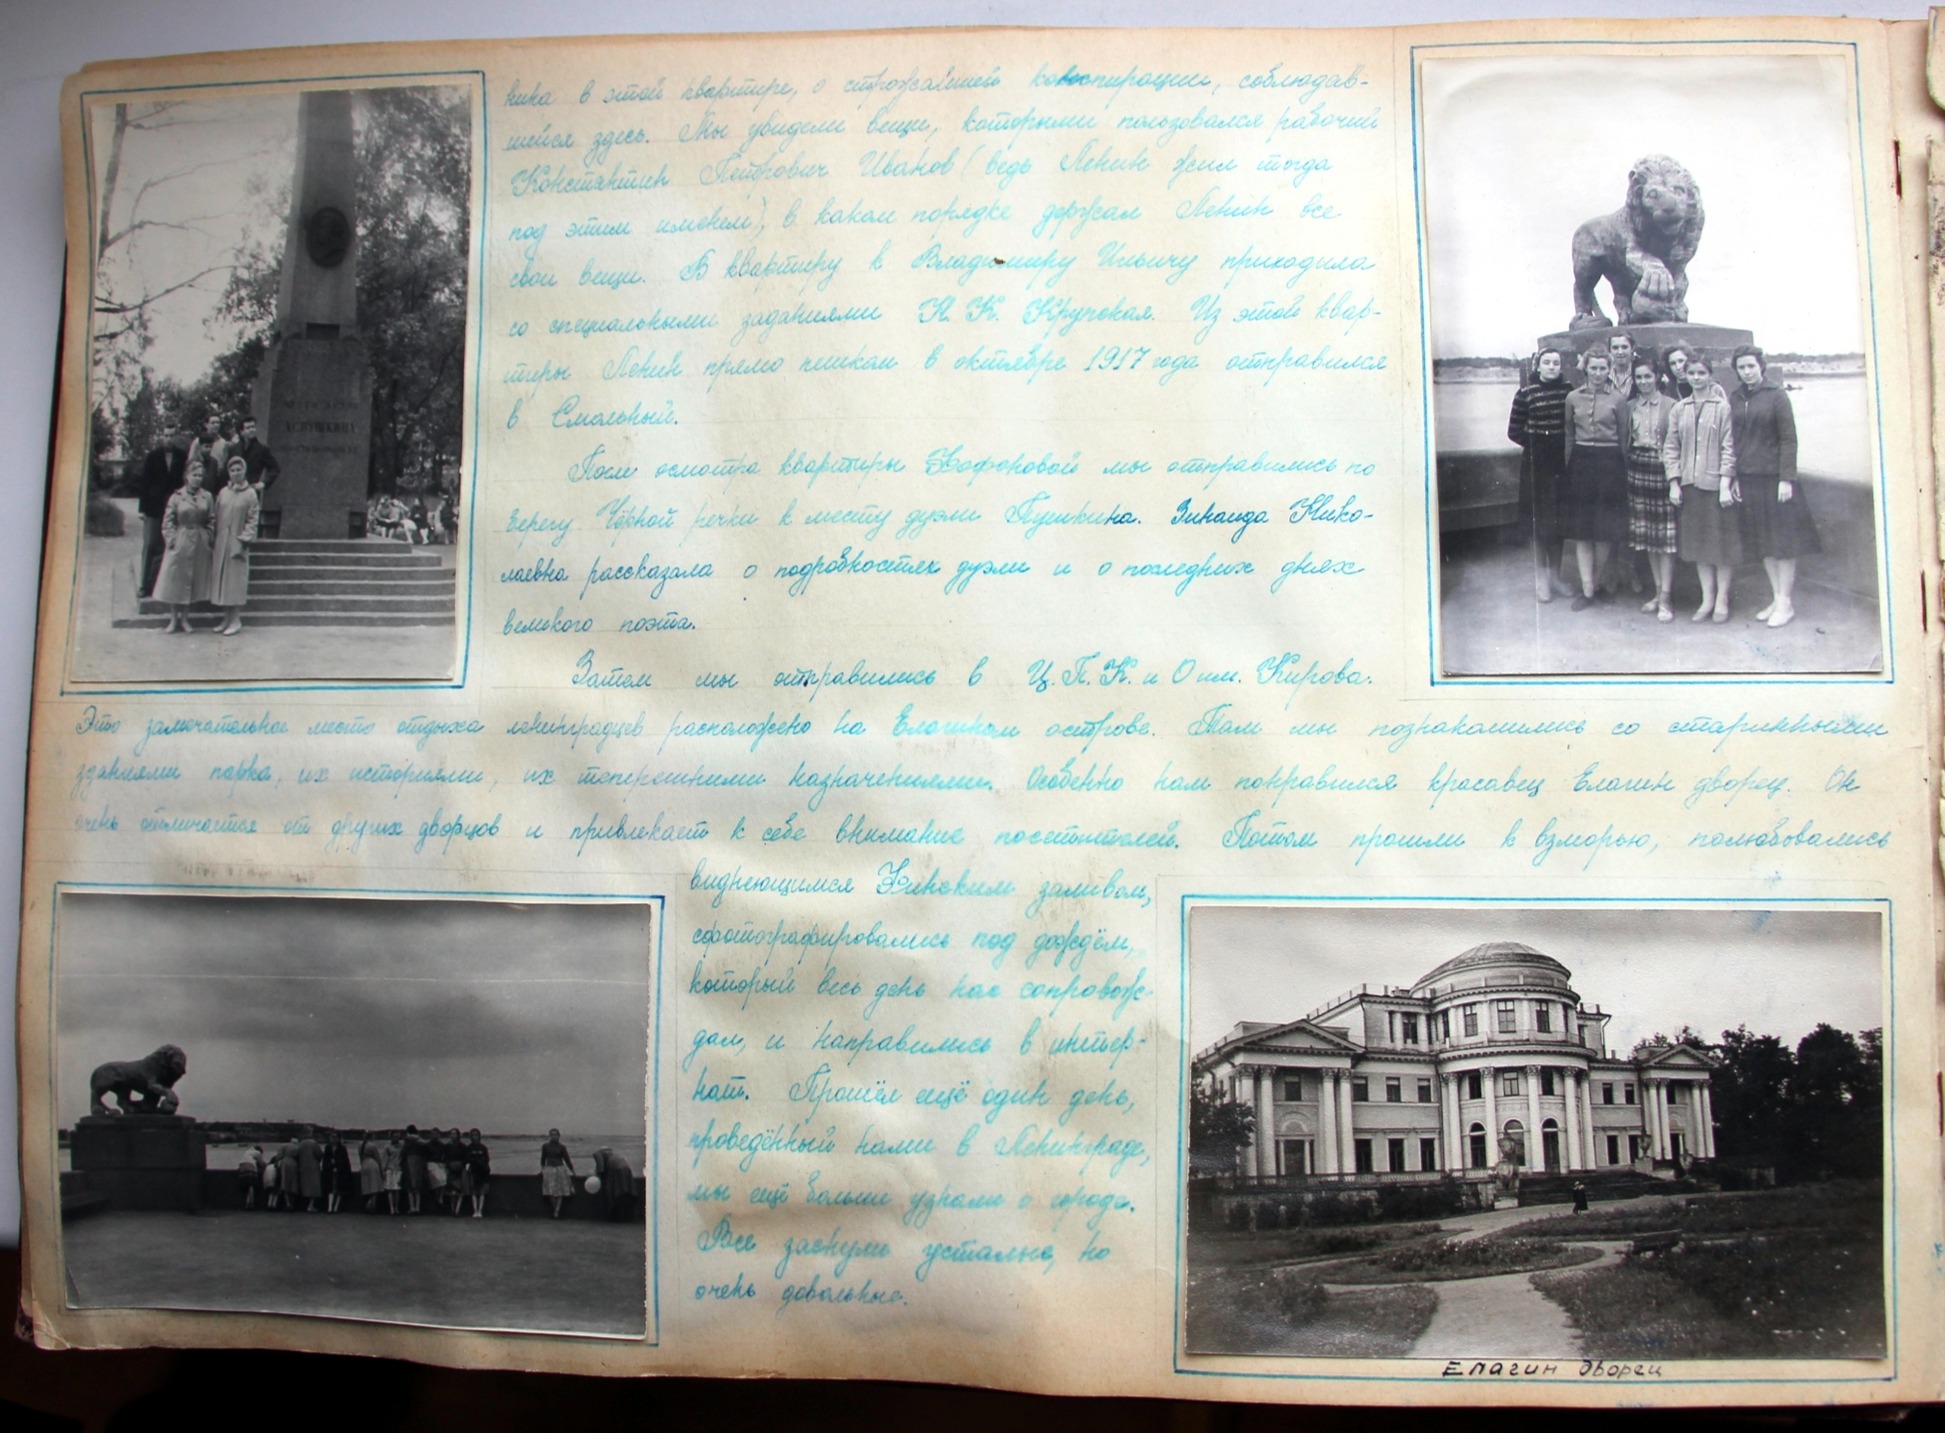 кина в этой квартире, о строжайшей конспирации, соблюдав-
шейся здесь. Мы увидели вещи, которыми пользовался рабочий
Константин Петрович Иванов (ведь Ленин жил тогда
под этим именем), в каком порядке держал Ленин все
свои вещи. В квартиру к Владимиру Ильичу приходила
со специальными заданиями Н. К. Крупская. Из этой квар-
тиры Ленин прямо пешком в октябре 1917 года отправился
в Смольный.
После осмотра квартиры Фофоновой мы отправились по
берегу Чёрной речки к месту дуэли Пушкина. Зинаида Нико-
лаевна рассказала о подробностях дуэли и о последних днях
великого поэта.
Затем мы отправились в Ц.П.К. и О им. Кирова.
Это замечательное место отдыха ленинградцев расположено на Елагином острове. Там мы познакомились со старинными
зданиями парка, их историями, их теперешними назначениями. Особенно нам понравился красавец Елагин дворец. Он
очень отличается от других дворцов и привлекает к себе внимание посетителей. Потом прошли к взморью, полюбовались
виднеющимся Финским заливом,
сфотографировались под дождём,
который весь день нас сопровож-
дал, и направились в интер-
нат. Прошёл ещё один день,
проведённый нами в Ленинграде,
мы ещё больше узнали о городе.
Все заснули усталые, но
очень довольные.
А.С.ПУШКИНА
Елагин дворец